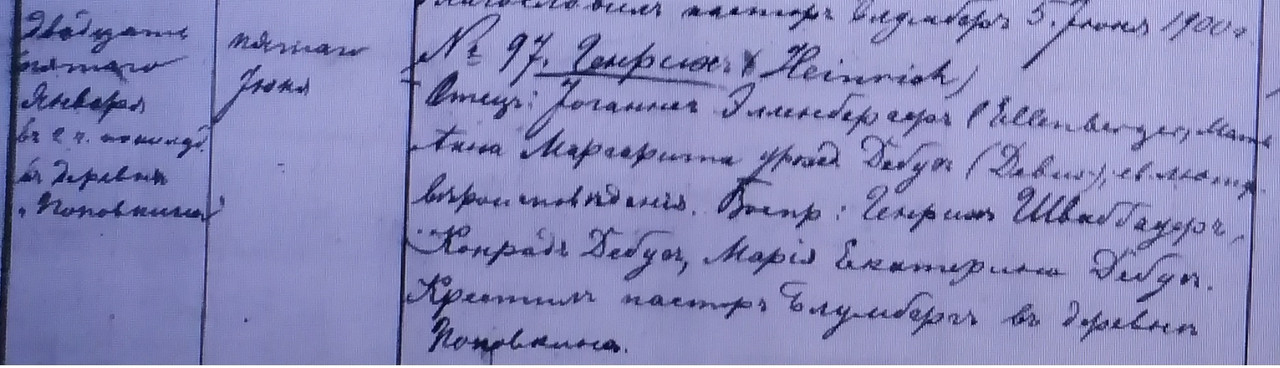 благословилъ пасторъ Блумбергъ 5. Іюня 1900 г.
Двадцать
пятаго
Января
въ 2 ч. пополуд.
въ деревнѣ
"Поповкина"
пятаго
Іюня
№ 97. Генрихъ (Heinrich)
Отецъ: Іоганнесъ Элленбергеръ (Ellenberger), Мать
Анна Маргарита урожд. Дебусъ (Debus), ев. лютер.
вѣроисповѣданія. Воспр: Генрихъ Швабауеръ,
Конрадъ Дебусъ, Марія Екатерина Дебусъ.
Крестилъ пасторъ Блумбергъ въ деревнѣ
Поповкина.